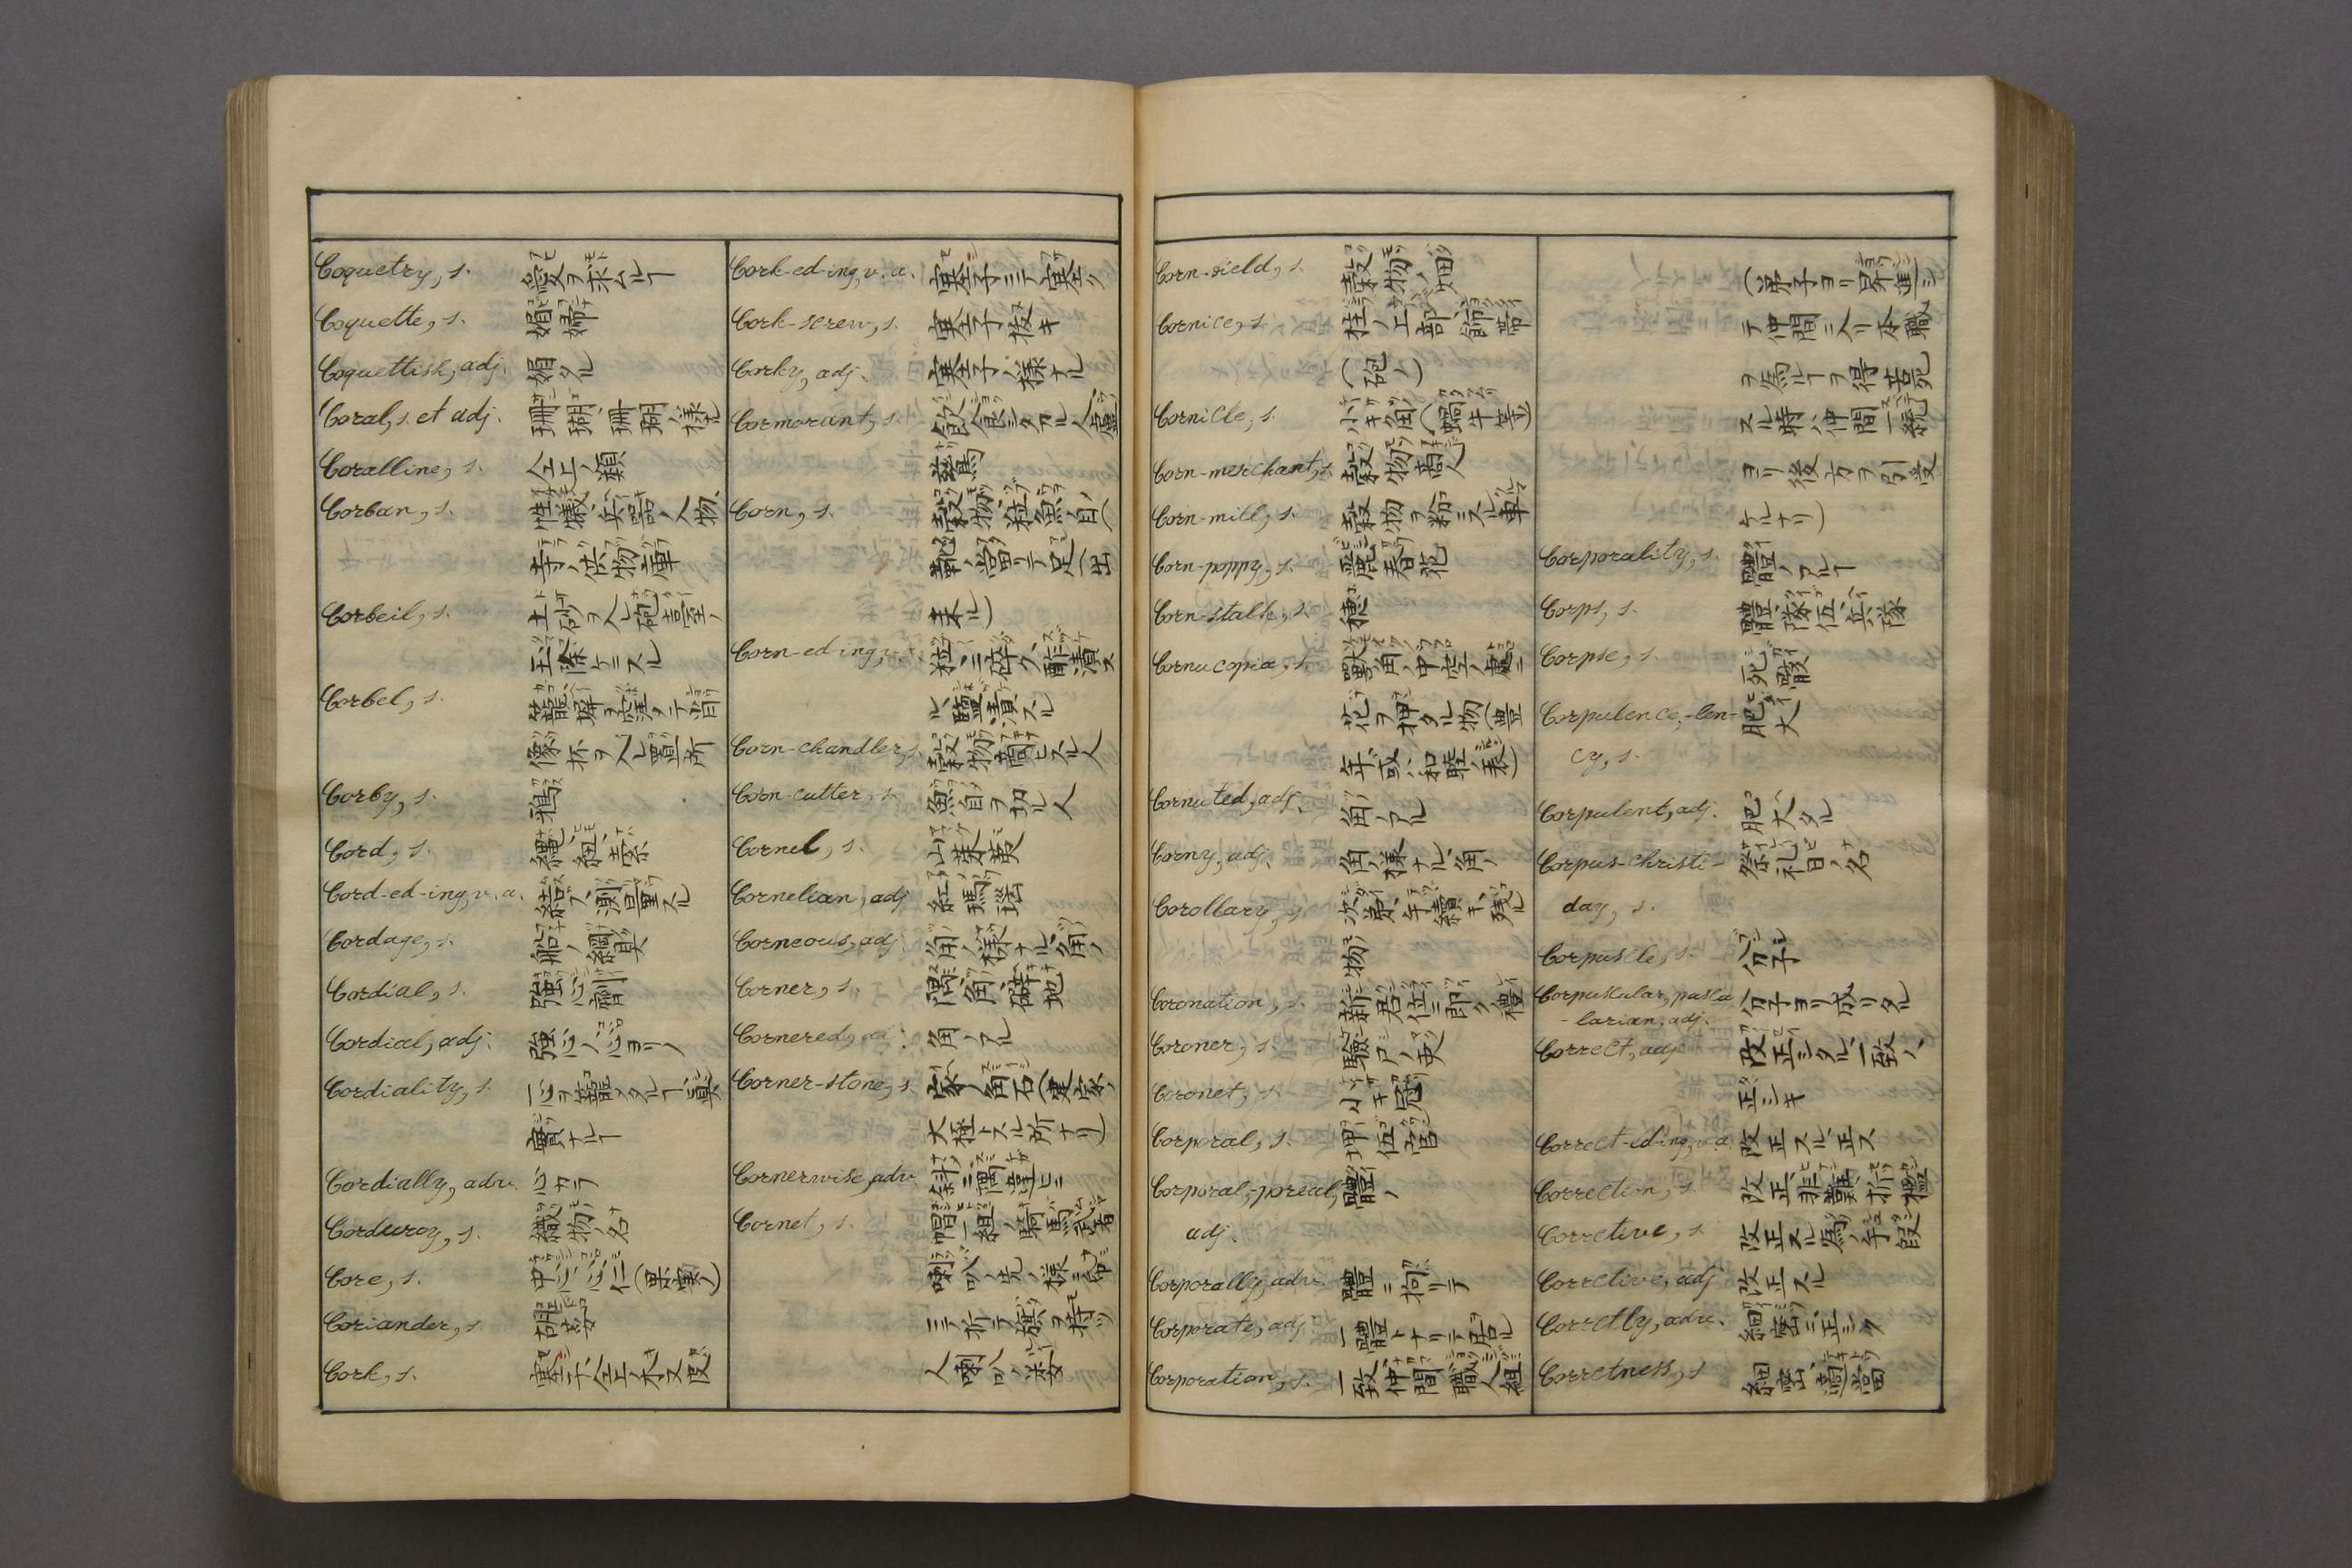 Coquetry, s. 愛ヲ求ムルヿ
Coquette, s. 娼婦
Coquettish, adj. 娼タル
Coral, s. et adj. 珊瑚、珊瑚ノ様ナル
Coralline, s. 仝上ノ類
Corban, s. 犠、兵器ノ入物、
寺ノ供物庫
Corbeil, s. 土砂ヲ入レ砲臺ノ
玉除トスル
Corbel, s. 籠、壁ヲ窪メテ
像抔ヲ入レ置所
Corby, s. 鴉
Cord, s. 縄、紐、索
Cord-ed-ing, v. a. 結フ、測量スル
Cordage, s. 船ノ綱具
Cordial, s. 強心劑
Cordial, adj. 強心ノ、心ヨリノ
Cordiality, s. 心ヲ籠メタルヿ、真
實ナルヿ
Cordially, adv. 心カラ
Corduroy, s. 織物ノ名
Core, s. 中心、心、仁(果実ノ)
Coriander, s. 胡荽
Cork, s. 塞子、仝上ノ木又皮
Cork-ed-ing, v. a. 塞子ニテ塞ク
Cork-screw, s. 塞子抜キ
Corky, adj. 塞子ノ様ナル
Cormorant, s. 飲食シタガル人、鸕
鶿鳥
Corn, s. 穀物、粒、魚ノ目(
靴ノ當リテ足ヘ出
来ル)
Corn-ed-ing, v. a. 粒ニ碎ク、酢漬ス
ル、鹽漬スル
Corn-chandler, s. 穀物商ヒスル人
Corn-cutter, s. 魚ノ目ヲ切ル人
Cornel, s. 山茱萸
Cornelian, adj. 紅瑪瑙
Corneous, adj. 角ノ様ナル、角ノ
Corner, s. 隅、角、僻地
Cornered, adj. 角ノアル
Corner-stone, s. 家ノ角石(建家ノ
大極トスル所ナリ)
Cornerwise, adv. 斜ニ、隅違ヒニ
Cornet, s. 一組ノ騎馬武者
喇叭ノ先ノ様ニ
ニテ折テ旗ヲ持ツ
人、喇叭ノ
Corn-field, s. 穀物ノ畑
Cornice, s. 柱ノ上部ノ飾帯
(砲ノ)
Cornicle, s. 小キ角(蝸牛等ノ)
Corn-merchant, s. 穀物商人
Corn-mill, s. 穀物ヲ粉ニスル車
Corn-poppy, s. 麗春花
Corn-stalk, s. 穂
Cornucopia, s. 獣角ノ中空ノ處ニ
花ヲ押タル物(豊
年、或ハ和睦ノ表)
Cornuted, adj. 角ノアル
Corny, adj. 角ノ様ナル、角ノ
Corollary, s. 次第、手續キ、残ル
物
Coronation, s. 新君位ニ即ク禮
Coroner, s. 驗尸ノ吏
Coronet, s. 小キ冠
Corporal, s. 押伍官
Corporal,-poreal, 體ノ
adj.
Corporally, adv. 體ニ拘リテ
Corporate, adj. 一體トナリテ居ル
Corporation, s. 一致、仲間、職人ノ組
(弟子ヨリ昇進シ
テ仲間ニ入リ本職
ヲ為ルヿヲ得若死
スル時ハ仲間一統
ヨリ後方ヲ引受
ケルナリ)
Corporality, s. 體ノアルヿ
Corps, s. 體、隊伍、兵隊
Corpse, s. 死骸
Corpulence,-len- 肥大
cy, s.
Corpulent, adj. 肥大タル
Corpus-christi- 祭礼日ノ名
day, s.
Corpuscle, s. 分子
Corpuscular, puscu 分子ヨリ成リタル
-larian, adj.
Correct, adj. 改正シタル、一致ノ、
正シキ
Correct-ed-ing, v. a. 改正スル、正ス
Correction, s. 改正、非難、折檻
Corretive, s. 改正スル為ノ手段
Corrctive, adj. 改正スル
Corrctly, adv. 細密ニ、正シク
Corretness, s. 細密、適當